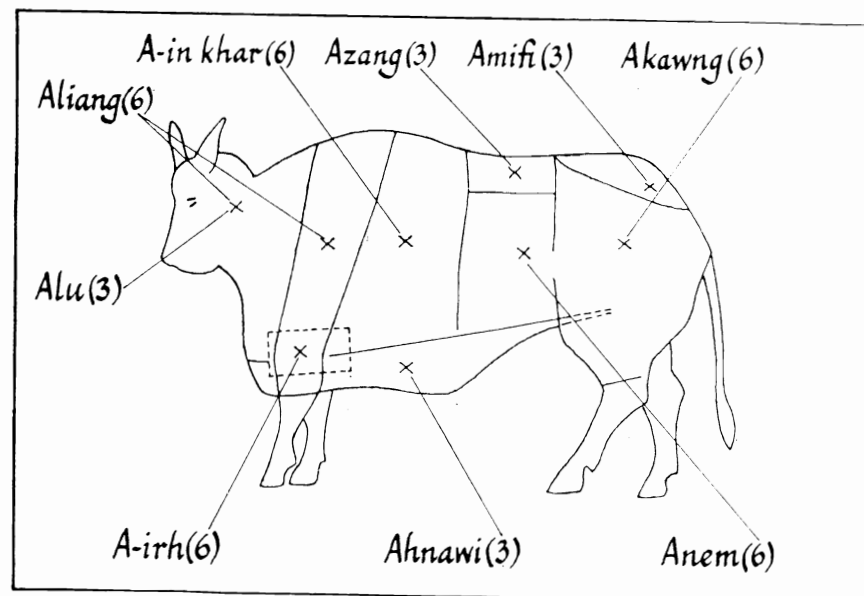 A-in khar(6) Azang(3) Amifi(3) Akawng(6)
Aliang(6)
Alu(3)
A-irh(6) Ahnawi(3) Anem(6)